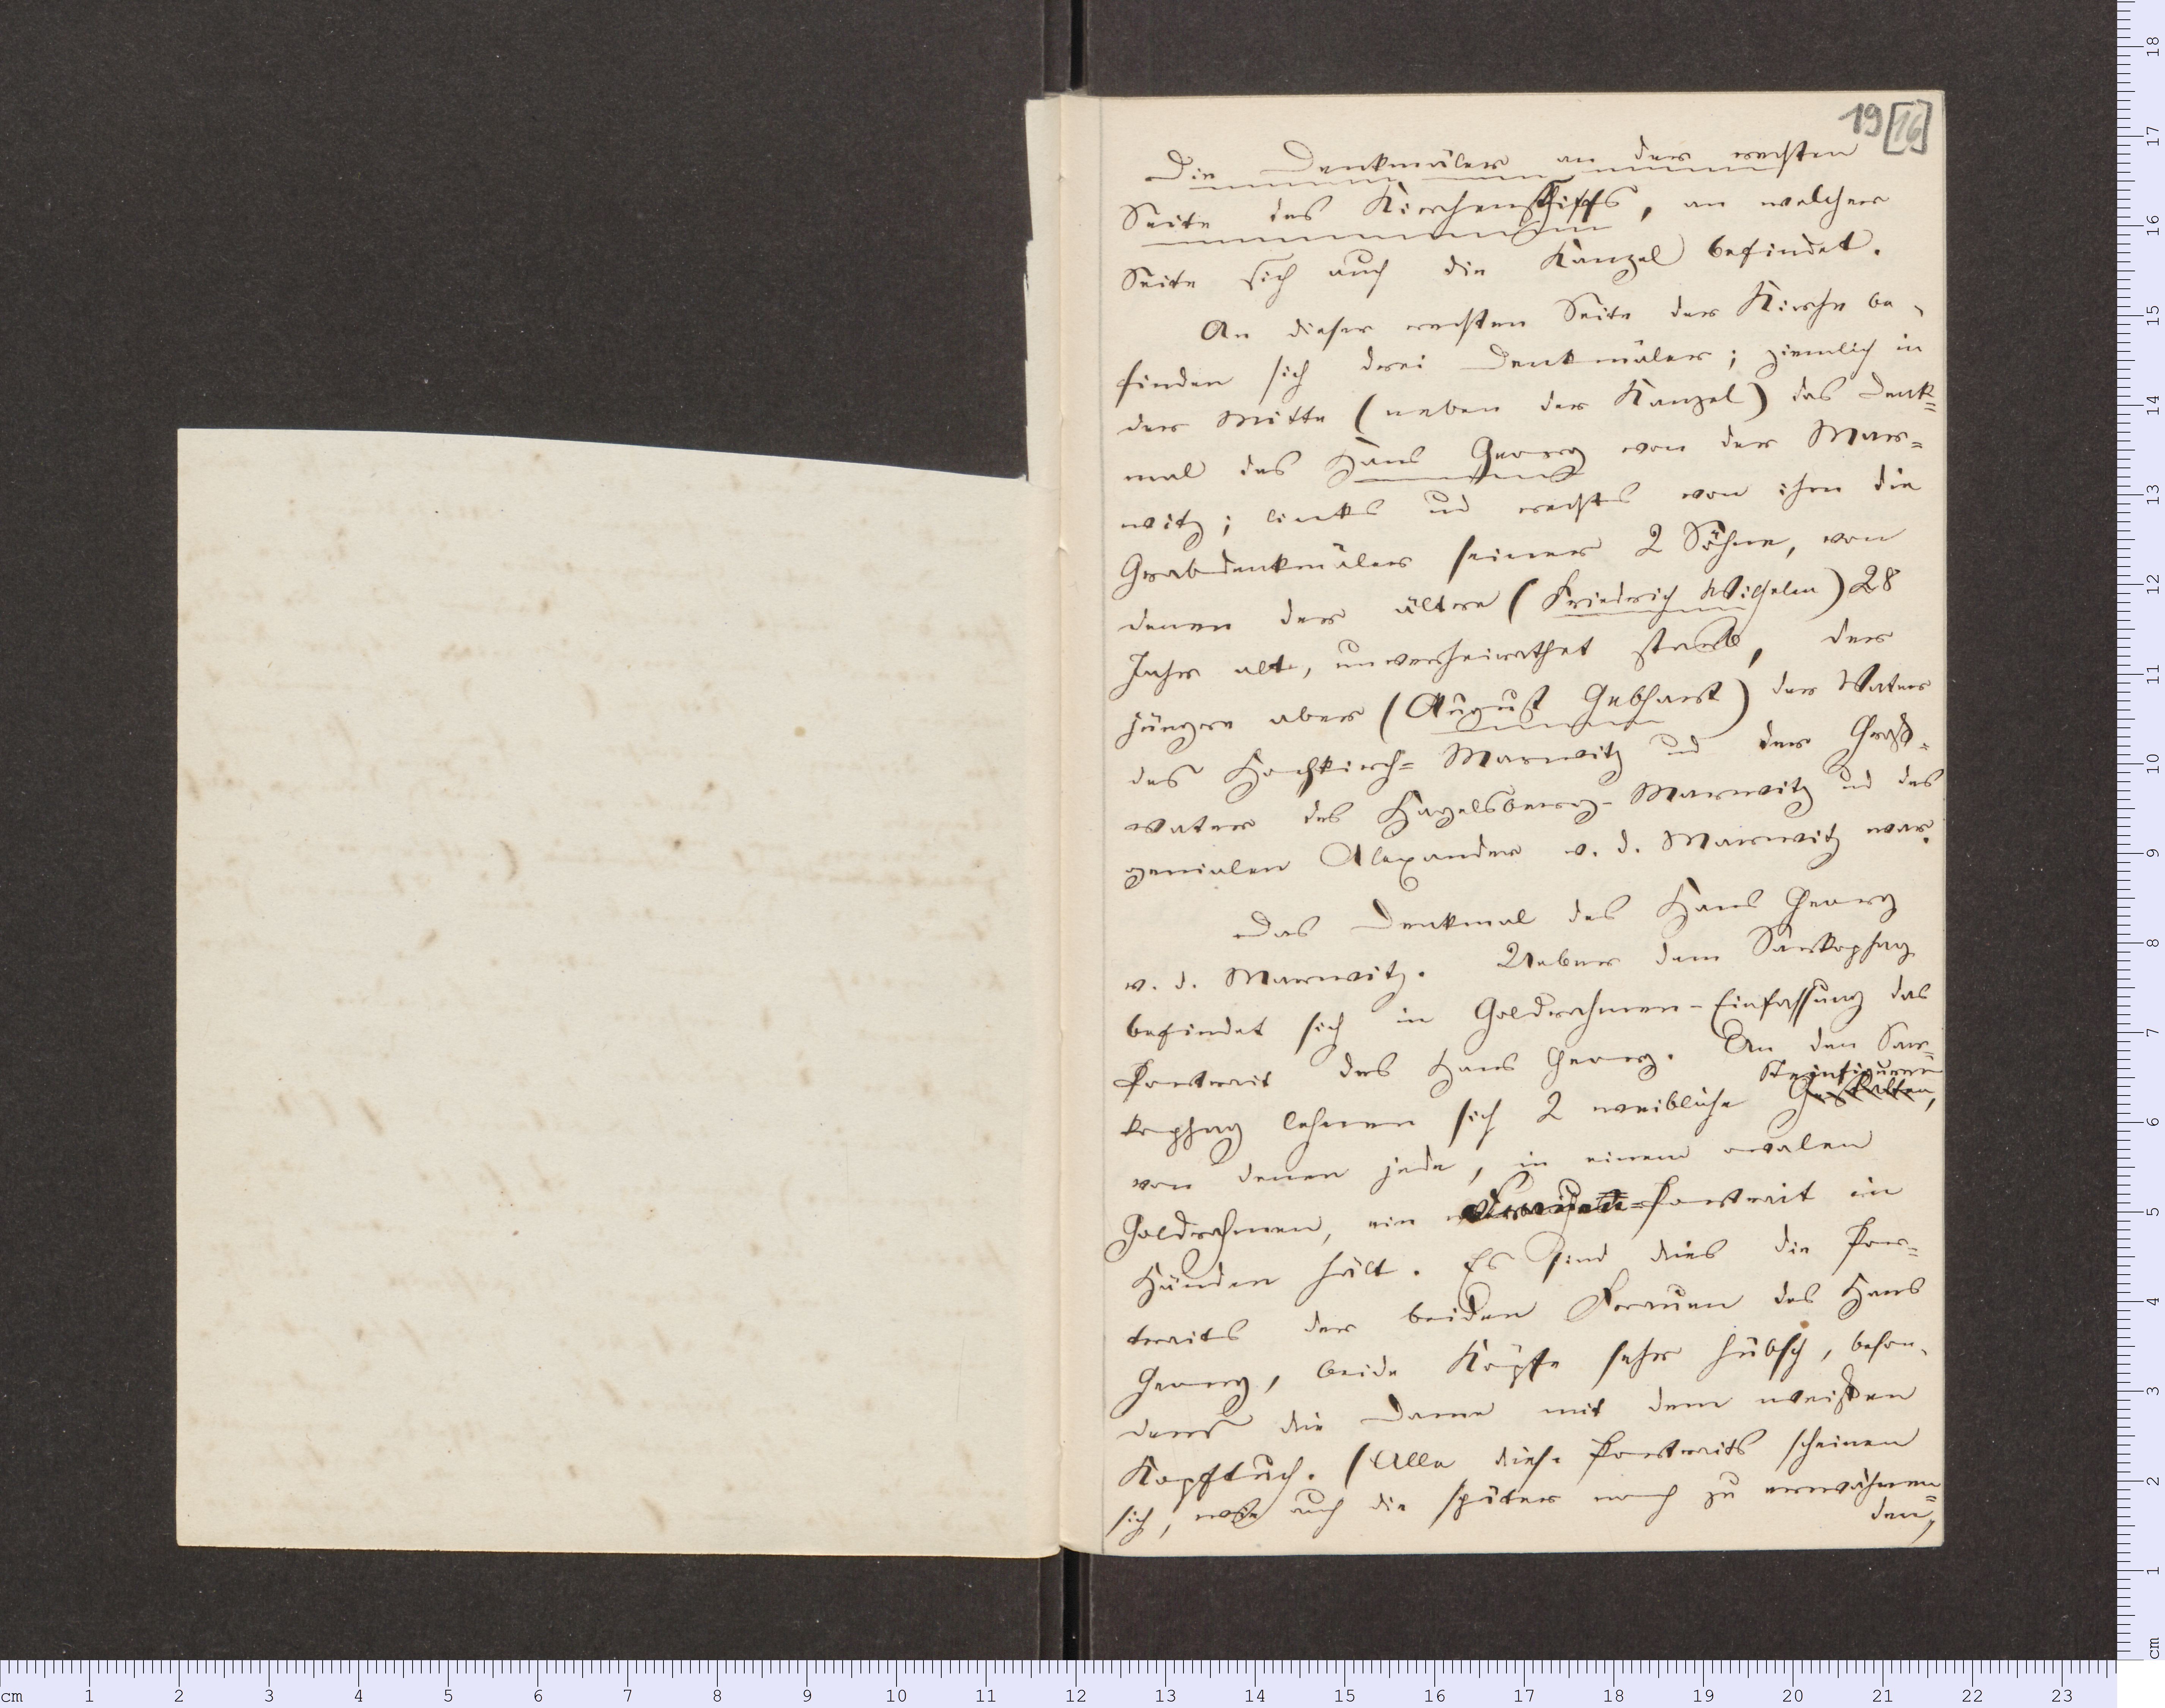 19 [16]
Die Denkmäler an der rechten
Seite des Kirchenschiffs, an welcher
Seite sich auch die Kanzel befindet.
An dieser rechten Seite der Kirche be-
finden sich drei Denkmäler; ziemlich in
der Mitte (neben der Kanzel) das Denk=
mal des Hans Georg von der Mar=
witz; links und rechts von ihm die
Grabdenkmäler seiner 2 Söhne, von
denen der ältre (Friedrich Wilhelm) 28
Jahr alt, unverheirathet starb, der
jüngre aber (August Gebhart) der Vater
des Hochkirch= Marwitz und der Groß=
vater des Hagelsberg-Marwitz und des
genialen Alexander v. d. Marwitz war.
Das Denkmal des Hans Georg
v. d. Marwitz. Ueber dem Sarkophag
befindet sich in Goldrahmen-Einfassung das
Portrait des Hans Georg. An den Sar=
Steinfiguren
kophag lehnen sich 2 weibliche Gestalten,
von denen jede, in einem ovalen
Goldrahmen, ein Portrait in
Händen hält. Es sind dies die Por=
traits der beiden Frauen des Hans
Georg, beide Köpfe sehr hübsch, beson-
ders die Dame mit dem weißen
Kopftuch. (Alle diese Portraits scheinen
sich, wie auch die später noch zu erwähnen=
den,